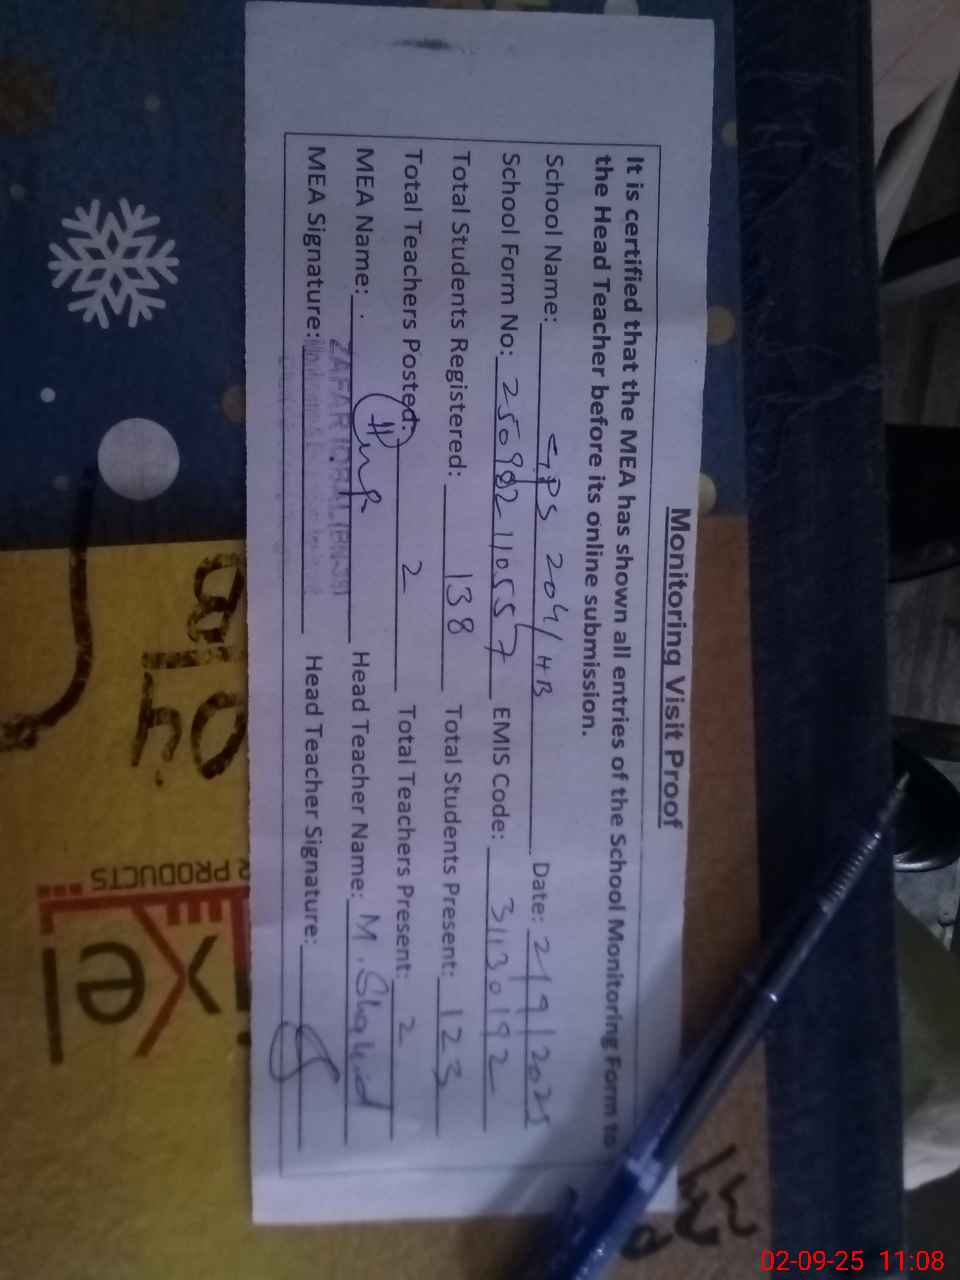 Monitoring Visit Proof
It is certified that the MEA has shown all entries of the School Monitoring Form to
the Head Teacher before its online submission.
School Name: GPS 204/HB Date: 2/9/2025
School Form No: 250982110557 EMIS Code: 31130192
Total Students Registered: 138 Total Students Present: 123
Total Teachers Posted: 2 Total Teachers Present: 2
MEA Name: ZAFAR IQBAL Head Teacher Name: M. Shahid
MEA Signature: Head Teacher Signature:
PRODUCTS
ixel
02-09-25 11:08